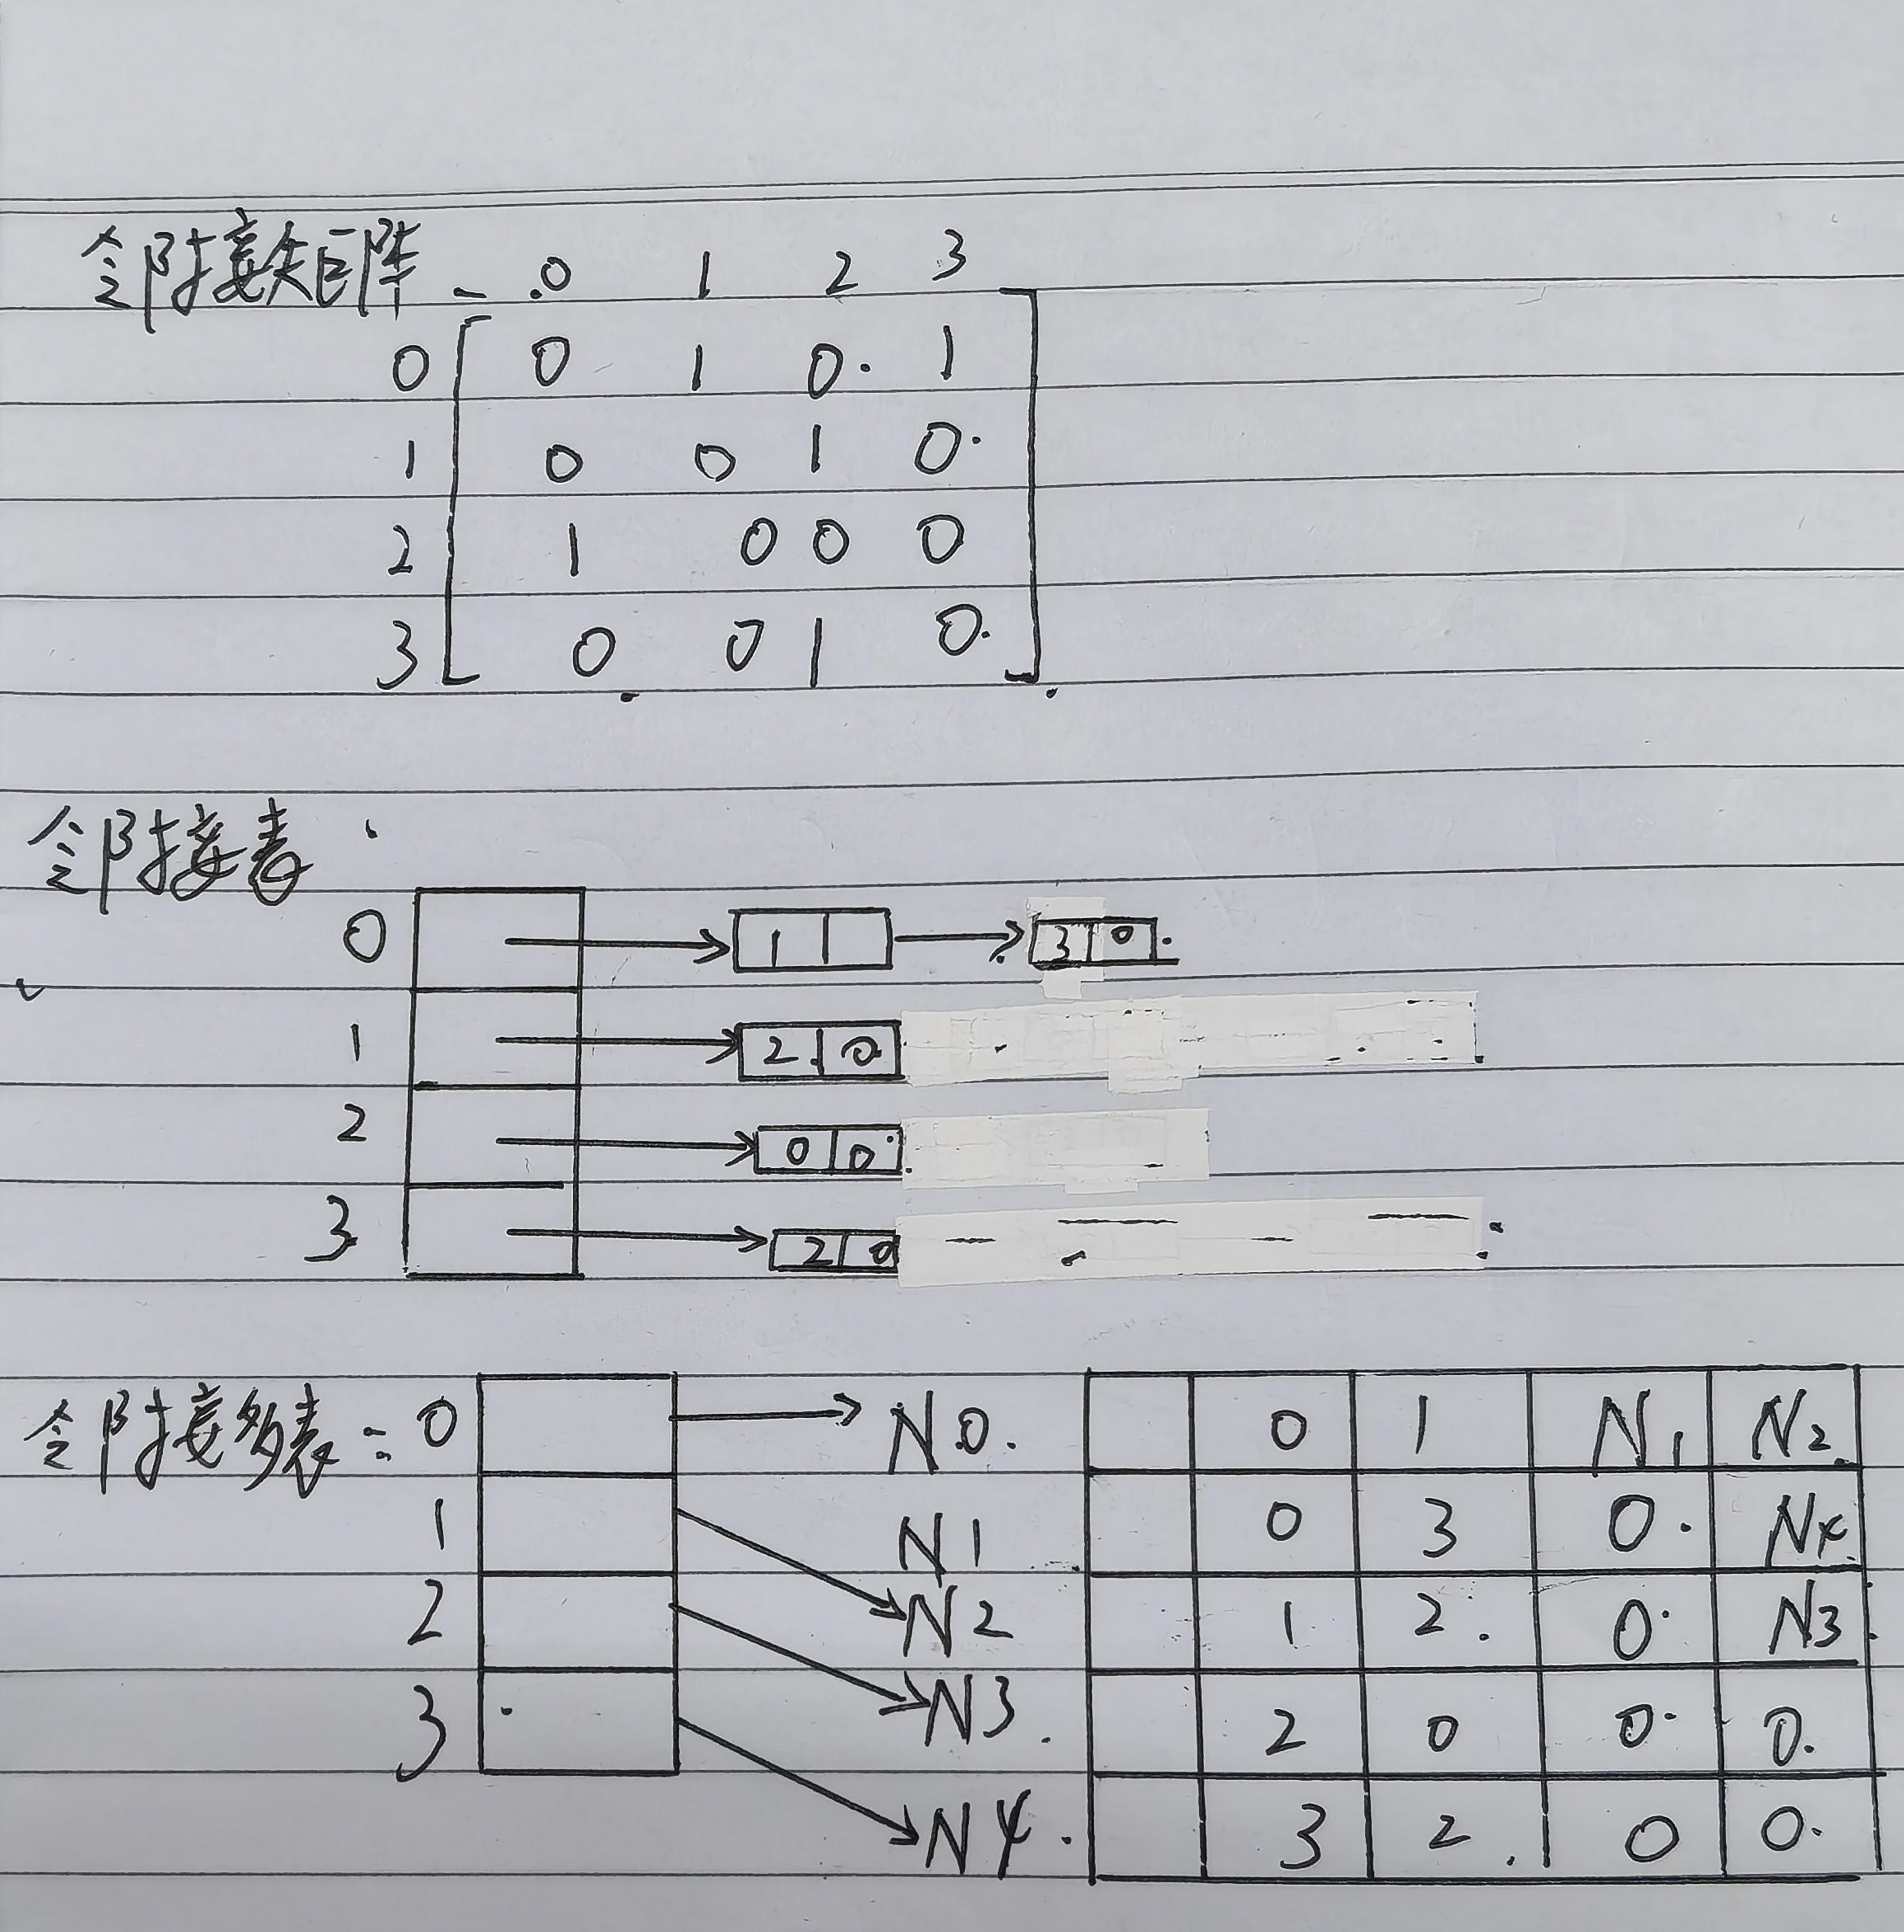 邻接矩阵 0 1 2 3
0 0 1 0. 1
1 0 0 1 0.
2 1 0 0 0
3 0 0 1 0.
邻接表
0 1 3 0.
1 2 0
2 0 0
3 2 0
邻接多表: 0 N0. 0 1 N1 N2
1 N1 0 3 0. N4
2 N2 1 2. 0. N3
3 N3. 2 0 0. 0.
N4. 3 2. 0 0.